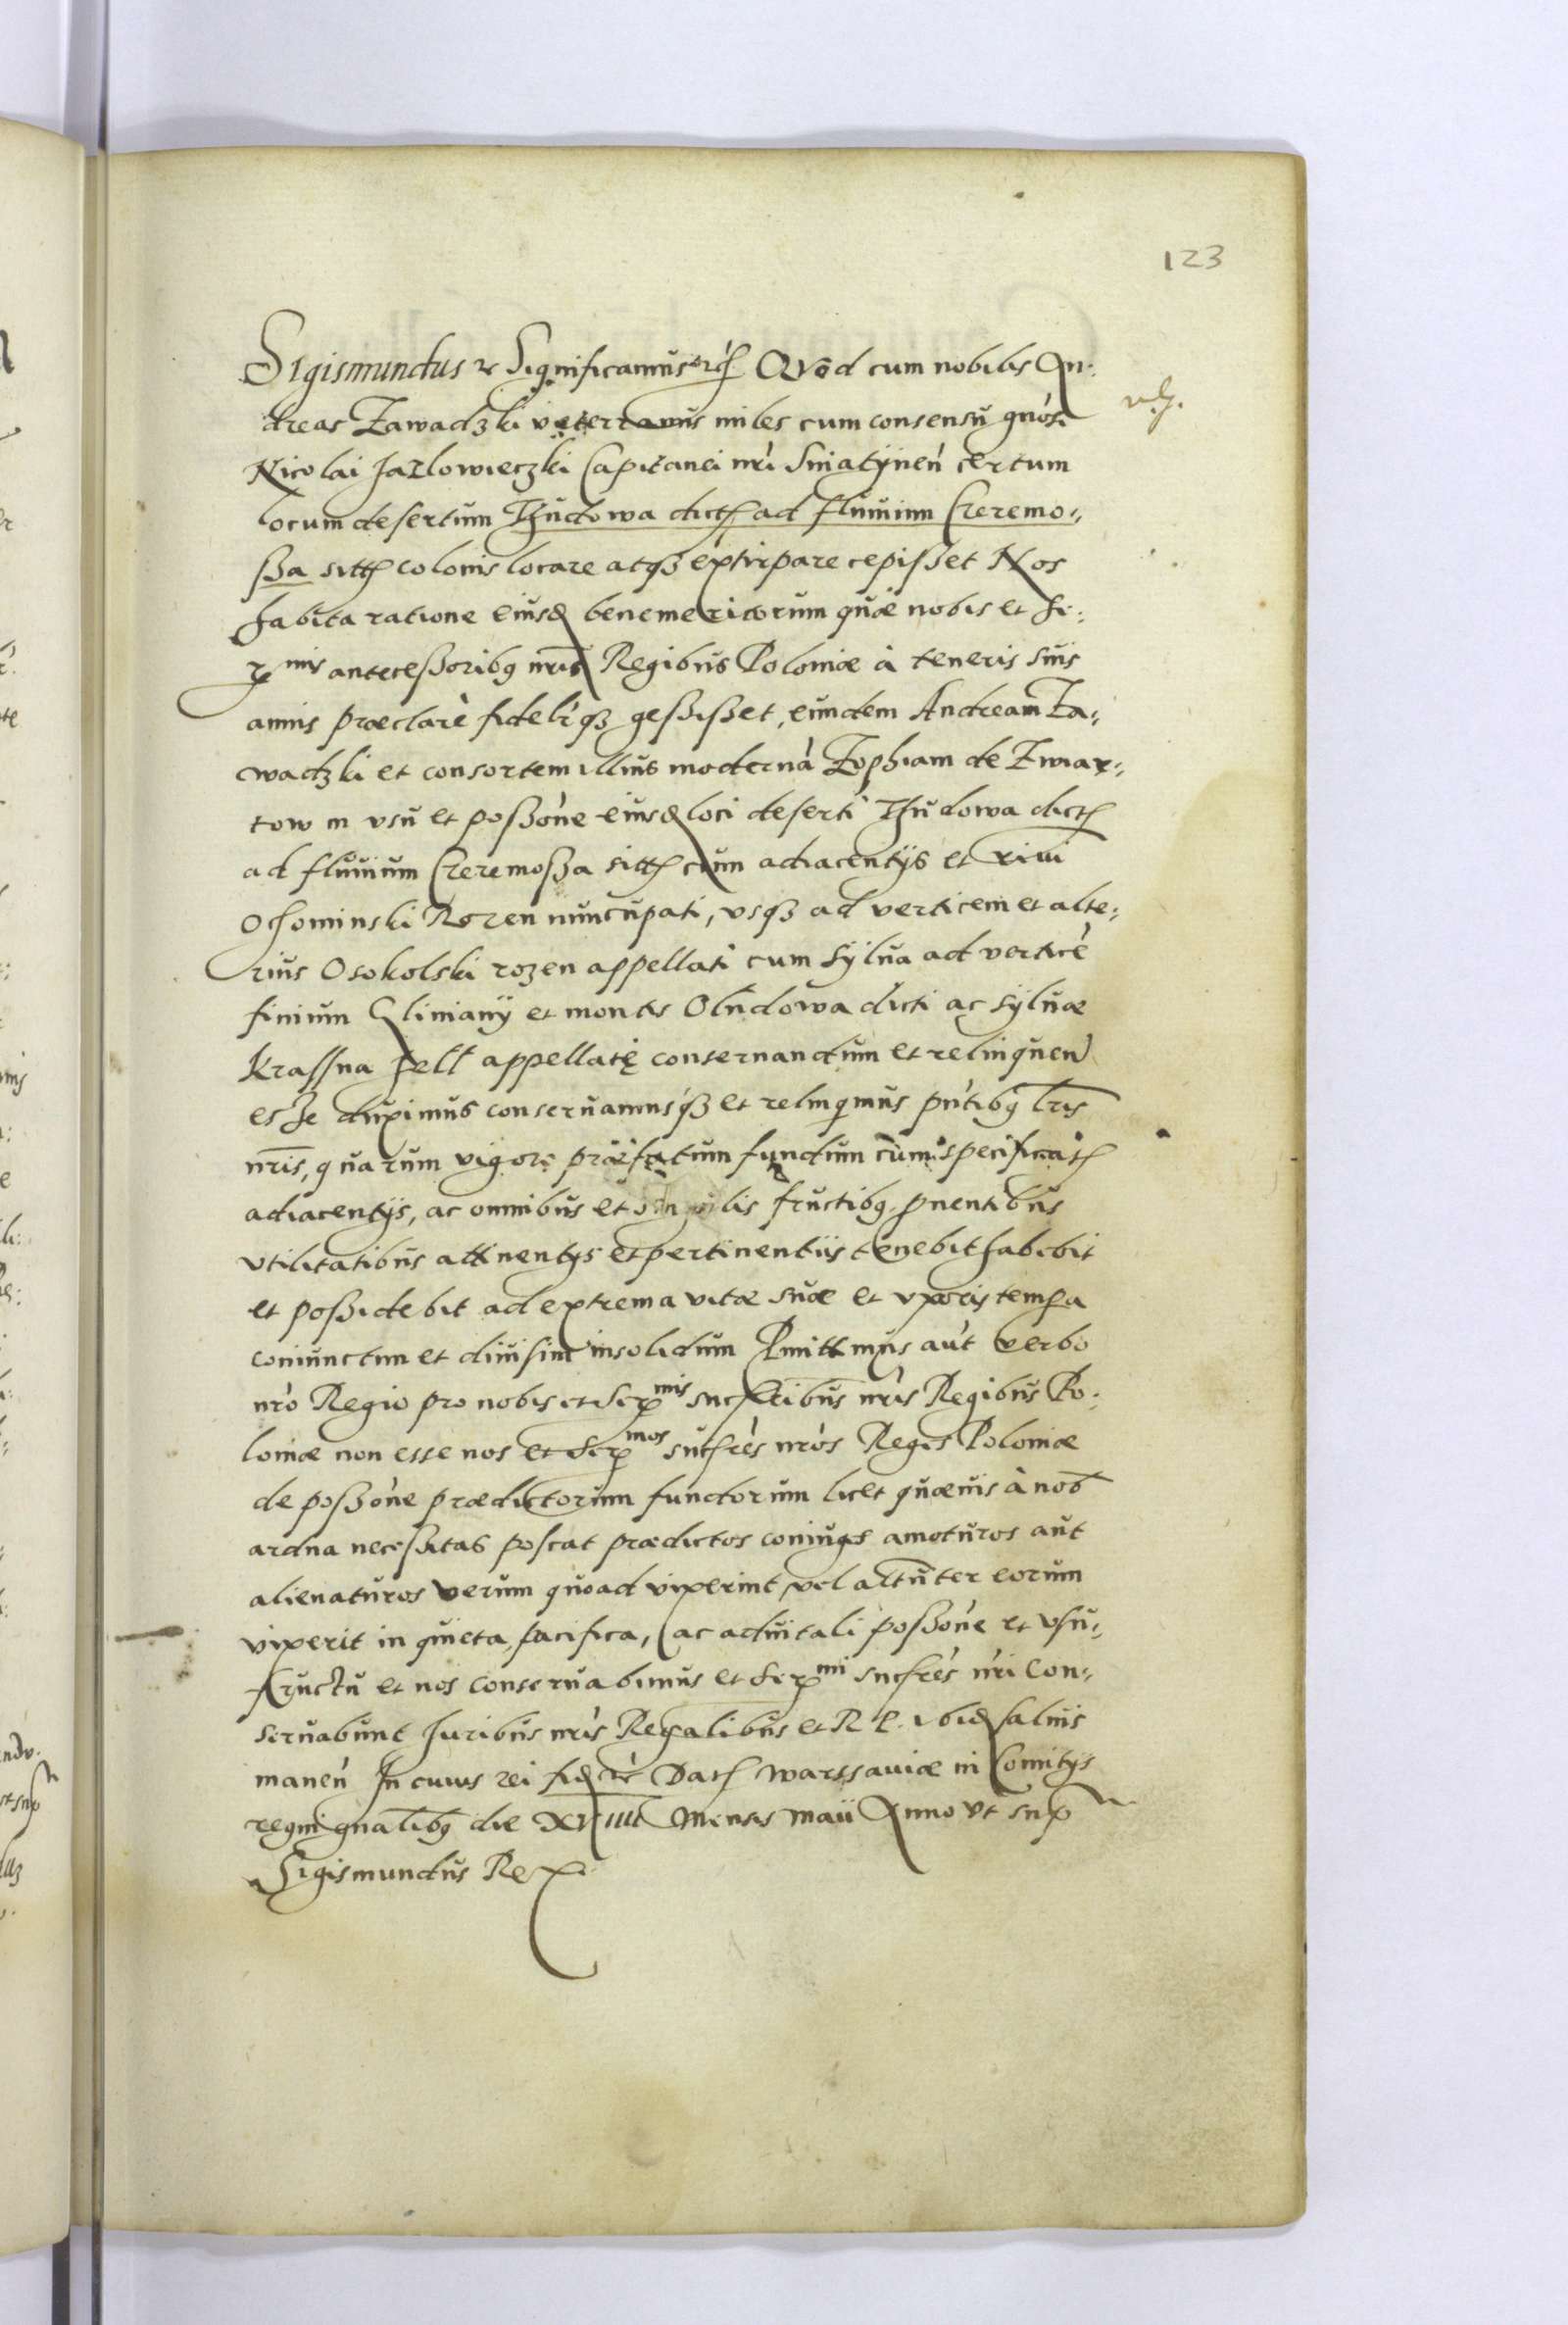 123
Sigismundus etc Significamus etc Quod cum nobilis An:
dreas Zawadzki veterranus miles cum consensu gnosi
Nicolai Jazlowieczki Capitanei nri Sniatÿnen certum
locum desertum Thudowa dict ad fluuium Czeremo,,
ßa sitt colonis locare atqз extirpare cepißet Nos
habita ratione eiusd benemeritorum quæ nobis et Se:
rmis anteceßoribq nris Regibus Poloniæ à teneris suis
annis præclarè fideliqз geßißet, eundem Andream Za,,
wadzki et consortem illius modernã Zophiam de Zwiar,,
tow in vsu et poßone eiusd loci deserti Thudowa dict
ad fluuium Czeremoßa sitt cum adiacentÿs et riui
Ohominski Rozen nuncupati, vsqз ad verticem et alte:
rius Osokolski rozen appellati cum sÿlua ad verticẽ
finium Glinianÿ et montis Olndowa dicti ac sÿluæ
krassna sell appellatę conseruandum et relinquen
esse duximus conseruamusqз et relinquimus pntibq lris
nris, quarum vigore præfatum fundum cum specificat
adiacentÿs, ac omnibus et singulis fructibq pnentibus
vtilitatibus attinentÿs et pertinentiis tenebit habebit
et poßidebit ad extrema vitæ suæ et vxoris tempa
coniunctim et diuisim insolidum Pmittimus aut verbo
nro Regio pro nobis et Sermis sucßribus nris Regibus Po:
loniæ non esse nos et Sermos sucßres nros Reges Poloniæ
de poßone prædictorum fundorum licet quæuis à nob
ardna neceßitas poscat prædictos coniuges amoturos aut
alienaturos verum quoad vixerint vel altunter eorum
vixerit in quieta, pacifica, ac aduitali poßone et vsu,,
fructu et nos conseruabimus et Sermi sucßres nri con,,
seruabunt Juribus nris Regalibus et R P. ibid saluis
manen In cuius rei fid etc Dat Warssauiæ in Comitÿs
regni gnalibq die XVIIII Mensis Maii Anno vt supr
Sigismundus Rex